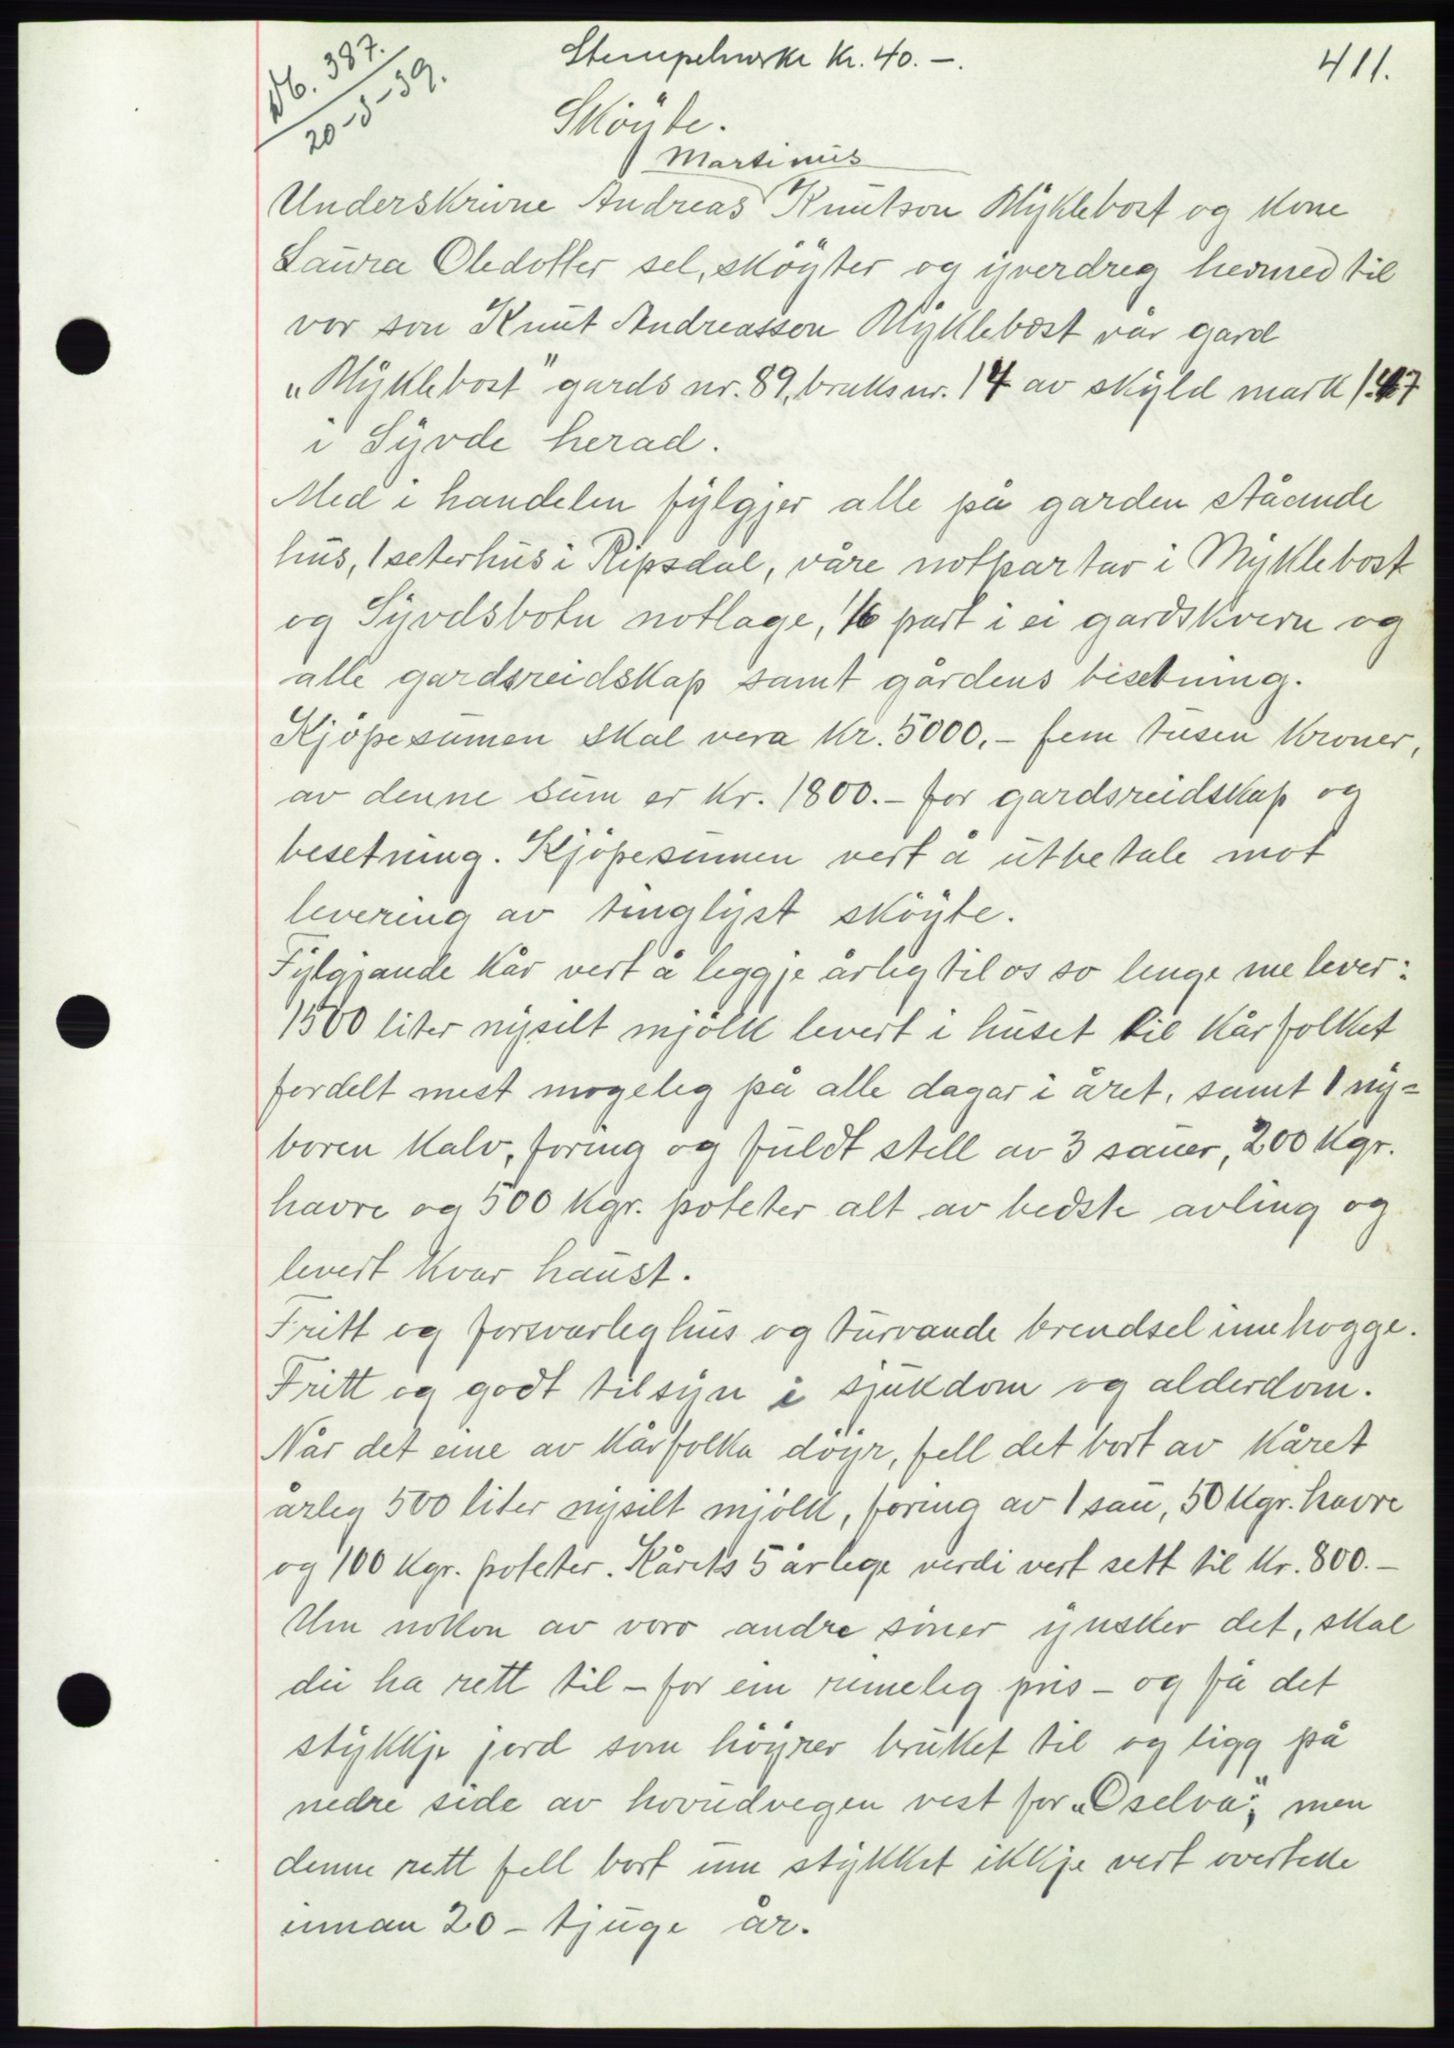 Nb. 387.
20-3-39.
Stempelmerke kr. 40.-.
411.
Sköyte.
Martinus
Underskrivne Andreas Knutson Myklebost og kone
Laura Oledotter sel, sköyter og yverdreg hermed til
vor son Knut Andreasson Myklebost vår gard
"Myklebost" gards nr. 89, bruks nr. 14 av skyld mark 1.47
i Syvde herad.
Med i handelen fylgjer alle på garden ståande
hus, 1 seterhus i Ripsdal, våre notpartar i Myklebost
og Syvdsbotn notlage, 1/6 part i ei gardskvern og
alle gardsreidskap samt gårdens bisetning.
Kjöpesumen skal vera kr. 5000.- fem tusen kroner,
av denne sum er kr. 1800.- for gardsreidskap og
besetning. Kjöpesumen vert å utbetale mot
levering av tinglyst sköyte.
Fylgjande kår vert å leggje årleg til os so lenge me lever:
1500 liter nysilt mjölk levert i huset til kårfolket
fordelt mest mogeleg på alle dagar i året, samt 1 ny=
boren kalv, foring og fuldt stell av 3 sauer, 200 kgr.
havre og 500 kgr. poteter alt av bedste avling og
levert kvar haust.
Fritt og forsvarleg hus og turvande brendsel innehogge.
Fritt og godt tilsyn i sjukdom og alderdom.
Når det eine av kårfolka döyr, fell det bort av kåret
årleg 500 liter nysilt mjölk, foring av 1 sau, 50 kgr. havre
og 100 kgr. poteter. Kårets 5 årlege verdi vert sett til kr. 800.-
Um nokon av voro andre söner ynsker det, skal
dei ha rett til - for ein rimeleg pris - og få det
stykkje jord som höyrer bruket til og ligg på
nedre side av hovudvegen vest for "Oselva", men
denne rett fell bort um stykket ikkje vert overteke
innan 20 - tjuge år.